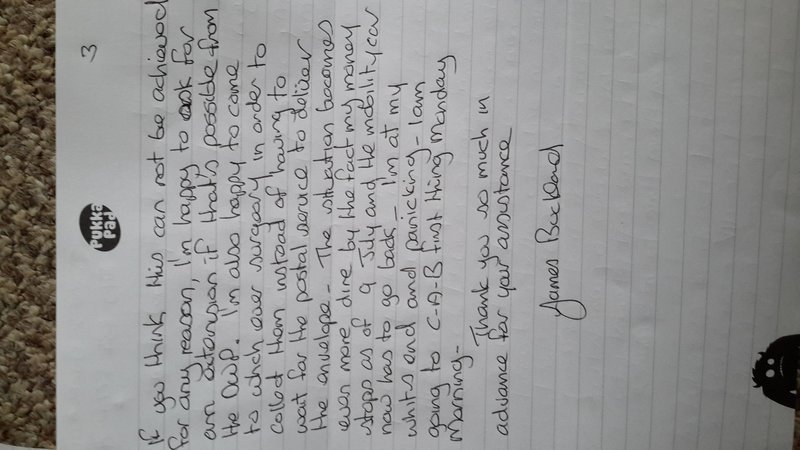 3
PUKKA
PAD
If you think this can not be achieved
for any reason, I'm happy to ask for
an extension if that's possible from
the DWP. I'm also happy to come
to which ever surgery in order to
collect them instead of having to
wait for the postal service to deliver
the envelope - The situation becomes
even more dire by the fact my money
stops as of 9 July and the mobility car
now has to go back - I'm at my
whits end and panicking - I am
going to C-A-B first thing Monday
Morning -
Thank you so much in
advance for your assistance
James